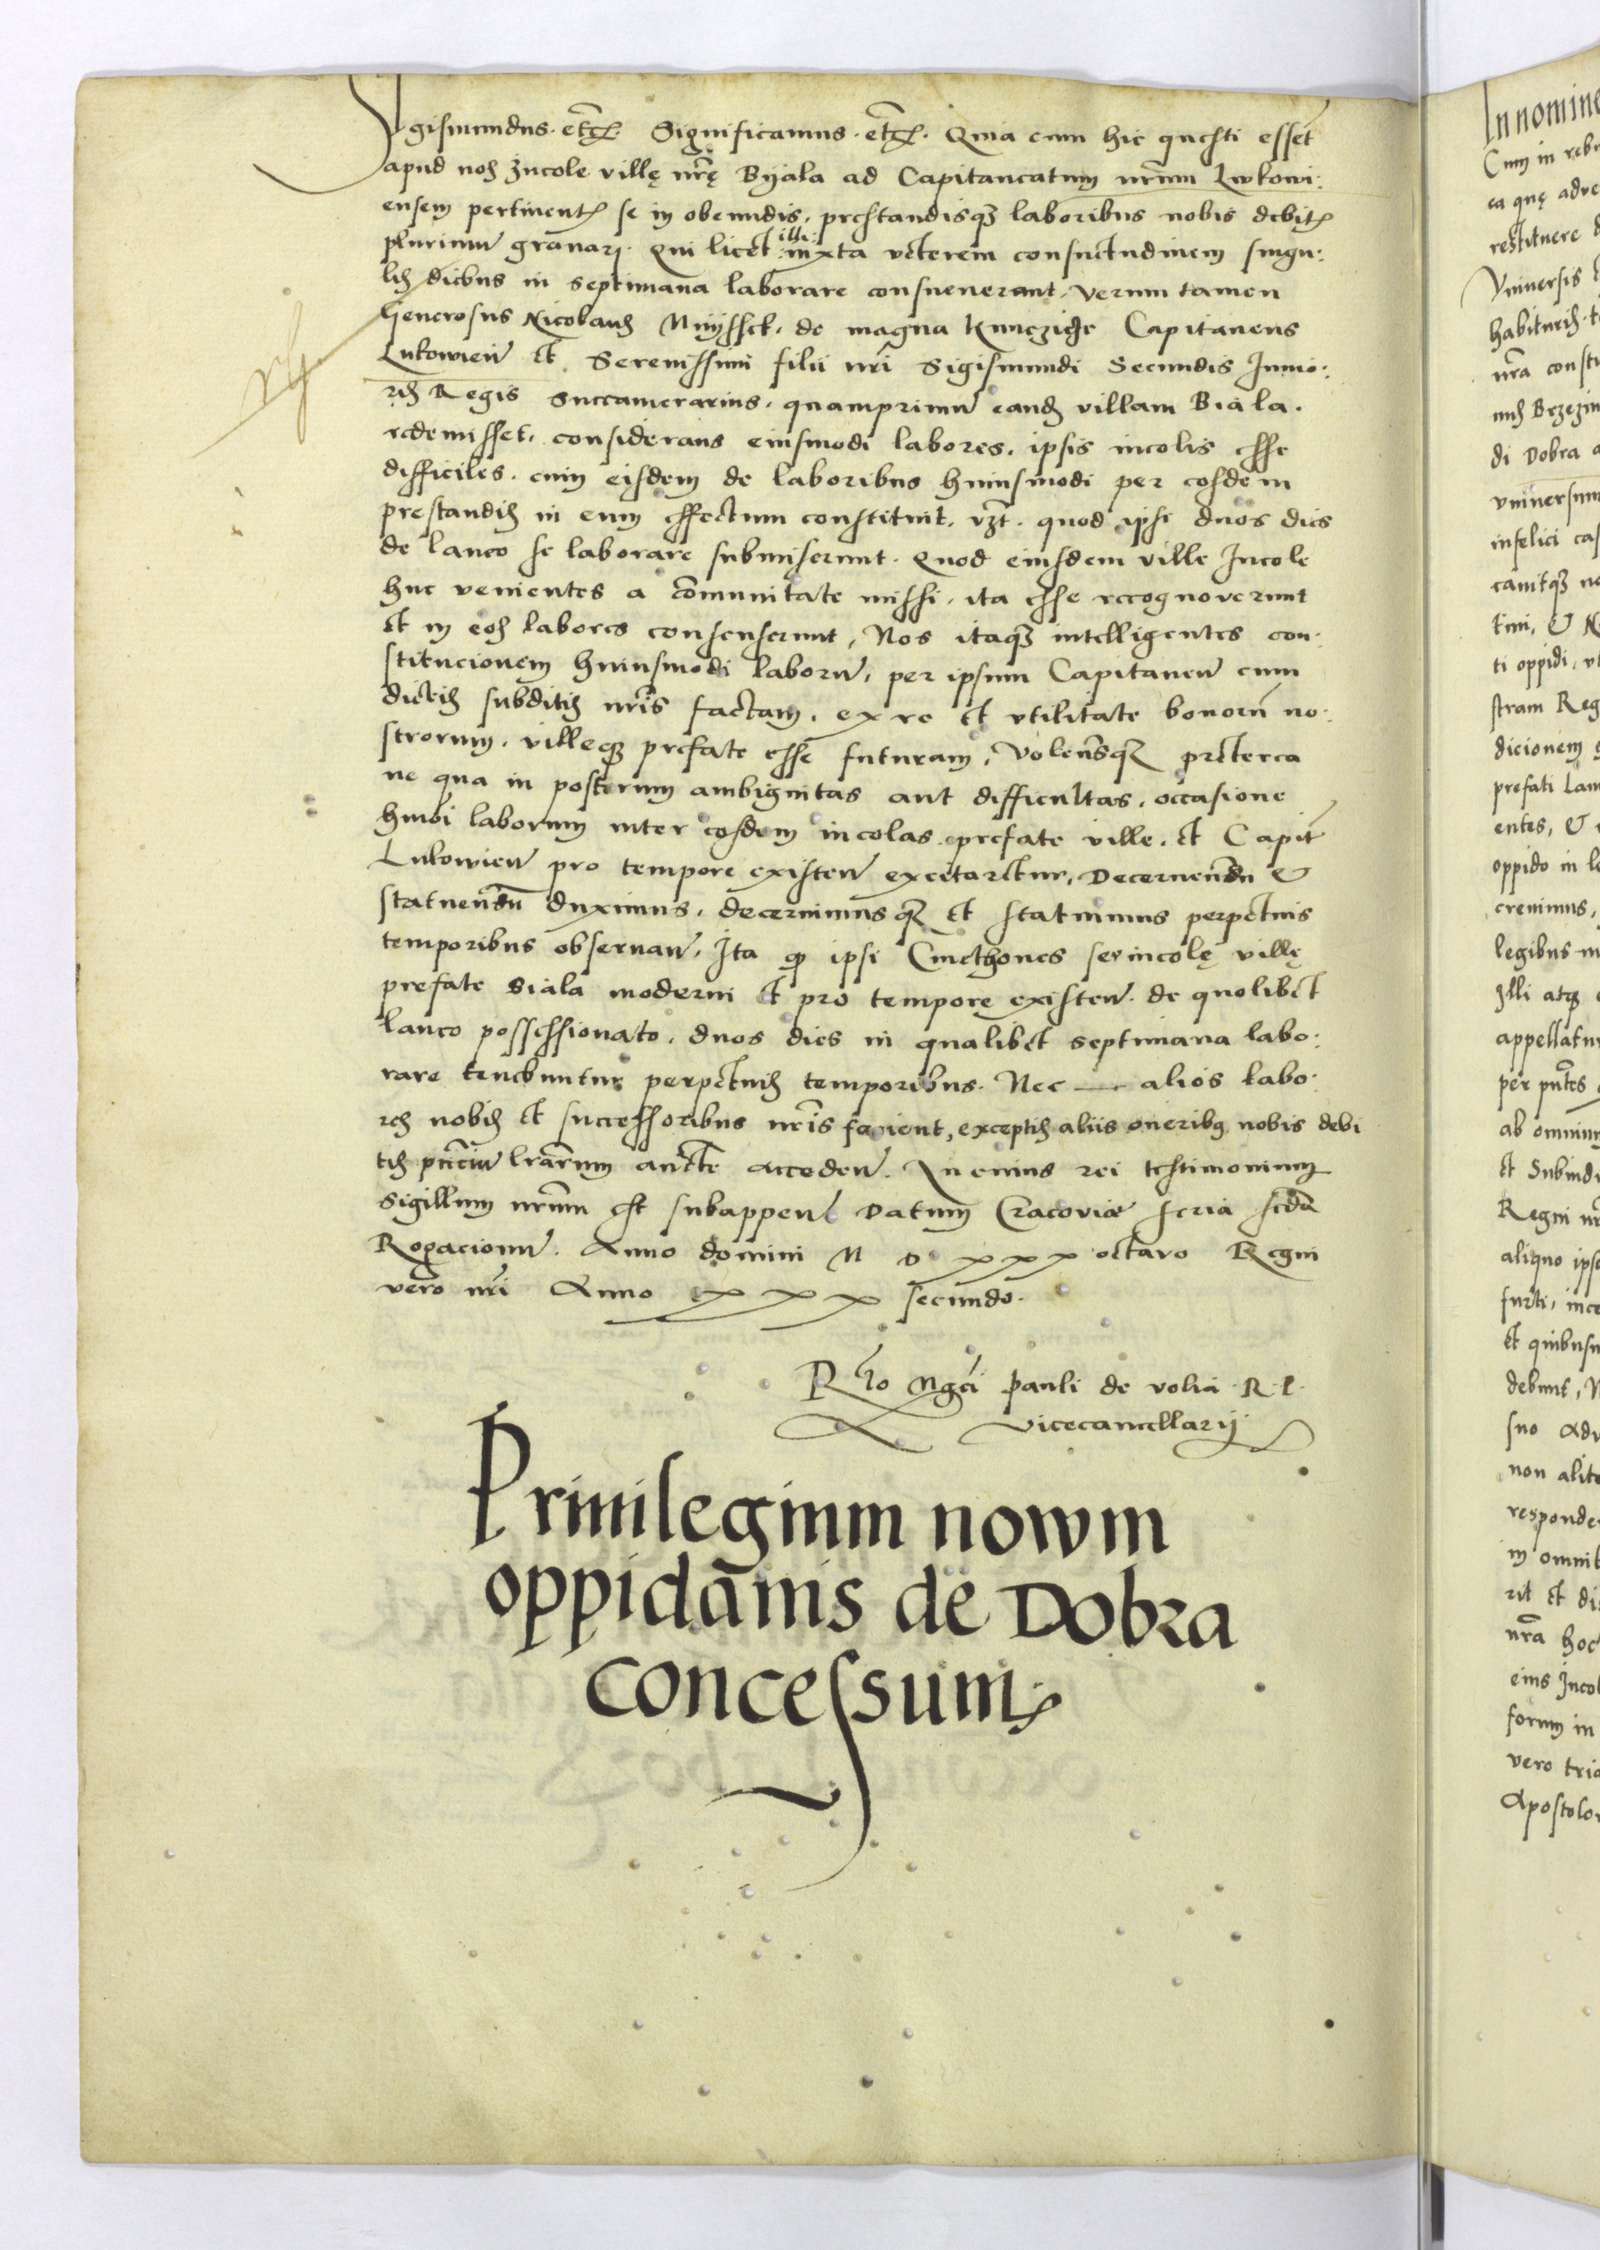 Sygismundus. etc. Significamus. etc. Quia cum hic questi essẽt
apud nos Incole villę nrẽ Byala ad Capitaneatum nrum Lwkowi:
ensem pertinentes se in obeundis, prestandisq̃ laboribus nobis debitis
plurimũ gravari. Qui licet illi iuxta veterem consuetudinem singu:
lis diebus in septimana laborare consueuerant. Verum tamen
Generosus Nicolaus de magna Capitaneus
Lukowieñ et Serenissimi filii nri Sigismundi Secundi Iunio:
ris Regis Succamerarius, quamprimũ eandẽ villam Biala.
redemisset, considerans eiusmodi labores, ipsis incolis esse
difficiles. cum eisdem de laboribus huiusmodi per eosdem
prestandis in eum effectum constituit. vzt. quod ipsi duos dies
de laneo se laborare submiserunt. Quod eiusdem ville Incole
huc venientes a cõmunitate missi, ita esse recognoverunt
et in eos labores consenserunt, Nos itaq̃ intelligentes con-
stitucionem huiusmodi laborũ, per ipsum Capitaneũ cum
dictis subditis nris factam, ex re et vtilitate bonorũ no:
strorum, villeq̃ prefate esse futuram, Volentesq̃ preterea
ne qua in posterum ambiguitas aut difficultas, occasione
hmõi laborum inter eosdem incolas prefate ville, et Capit
Lukowieñ pro tempore existeñ excitaretur, Decernendũ &
statuendũ duximus, decernimusq̃ et statuimus perpetuis
temporibus observañ, Ita q̃ ipsi Cmethones seu incolę villę
prefate Biala moderni et pro tempore existeñ. de quolibet
laneo possessionato, duos dies in qualibet septimana labo:
rare tenebuntur perpetuis temporibus. Nec — alios labo:
res nobis et successoribus nris facient, exceptis aliis oneribus nobis debi
tis pñciũ lrarum aucte accedeñ. In cuius rei testimonium
Sigillum nrum est subappeñ Datum Cracoviæ feria scda
Rogacionũ. Anno domini M D xxx octavo Regni
vero nri Anno xxx secundo.
Rlo Mgci Pauli de volia R. P.
vicecancellarij.
Priuilegium nowm
oppidãnis de Dobra
concessum
In nomine
Cum in reb
ea quę adve
restituere
Vniuersis
habituris.
nra consti
nus Brzezin
di Dobra a
vniuersum
infelici cas
ti oppidi, vt
stram Reg
dicionem
prefati Lam
entes, &
oppido in lo
creuimus,
legibus in
Illi atq̃
appellatur
per pñtes
ab omnium
et Subindi
Regni nr
aliquo ips
furti, ince
et quibusu
debent, N
suo Adv
non alite
responde
in omnib
rit et di
nra hoc
eius Incol
forum in
vero tria
Apostolor